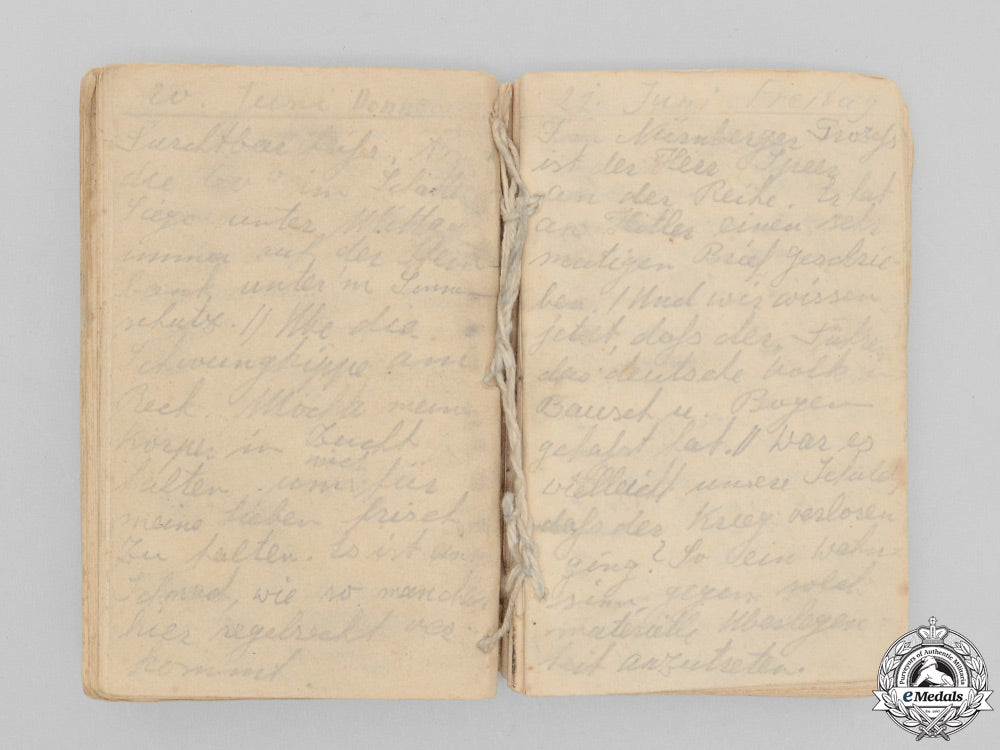 20. Juni Donners
Furchtbar heiss.
die 40° im Schatt
Liege unter Mittag
immer auf der Stein
bank unter'm Sonnen
schutz. // Übe die
Schwungkippe am
Reck. Möchte meine
Körper in Zucht
halten um mich für
meine Lieben frisch
zu halten. Es ist ein
wie so mancher
hier regelrecht ver-
kommt.
21. Juni Freitag
Im Nürnberger Prozess
ist der Herr Speer
an der Reihe. Er hat
an Hitler einen sehr
mutigen Brief geschrie-
ben. // Und wir wissen
jetzt dass der Führer
das deutsche Volk in
Bausch u. Bogen
gehasst hat. // War es
vielleicht unsere Schuld,
dass der Krieg verloren
ging? So ein Wahn-
sinn gegen solch
materielle Überlegen-
heit anzutreten.
Purveyors of Authentic Militaria
eMedals